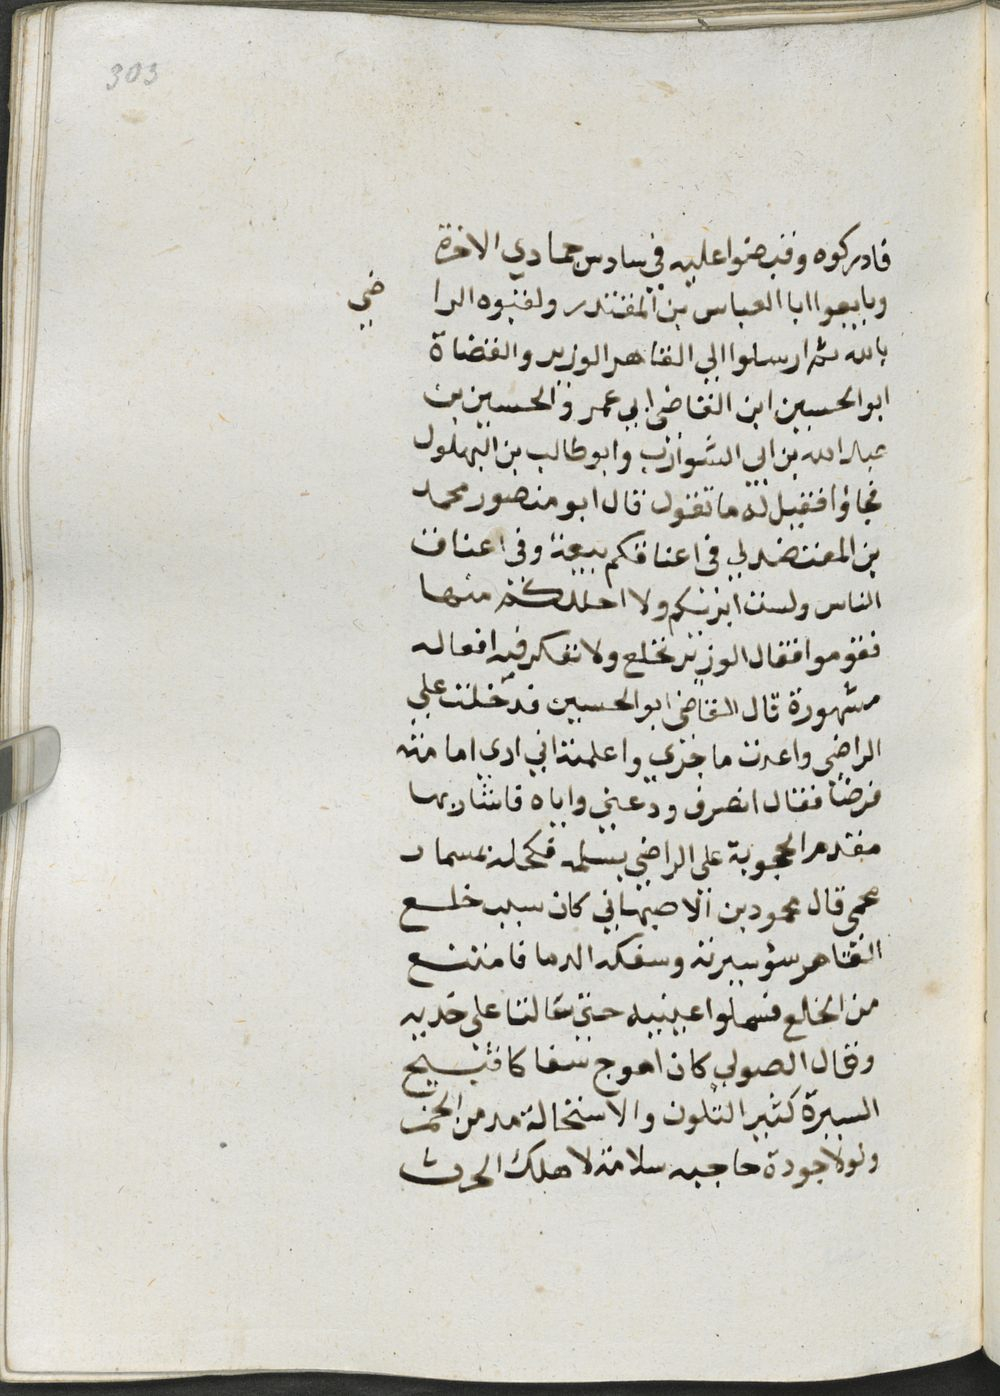 303
فادركوه وقبضوا عليه في سادس جمادي الاخرة
وبايعوا ابا العباس بن المقتدر ولقبوه الرا ضي
بالله ثم ارسلوا الي القاهر الوزير والقضاة
ابو الحسين ابن القاضي ابي عمر والحسين بن
عبد الله بن ابي الشوارب وابو طالب بن البهلول
فجاؤا فقيل له ما تقول قال ابو منصور محمد
بن المعتضد لي في اعناقكم بيعة وفي اعناق
الناس ولست ابرئكم ولا احللكم منها
فقوموا فقال الوزير نخلع ولا نفكر فيه افعاله
مشهورة قال القاضي ابو الحسين فدخلت علي
الراضي واعدت ما جري واعلمته اني اري امامته
فرضا فقال انصرف ودعني واياه فاشار بها
مقدم الحجوبة على الراضي بسلمه فكحله بمسمار
محمي قال محمود بن الاصبهاني كان سبب خلع
القاهر سؤ سيرته وسفكه الدما فامتنع
من الخلع فسملوا عينيه حتى سالتا على خديه
وقال الصولي كان اهوج سفاكا قبيح
السيرة كثير التلون والاستحالة مدمن الخمر
ولولا جودة حاجبه سلامة لاهلك الحرث